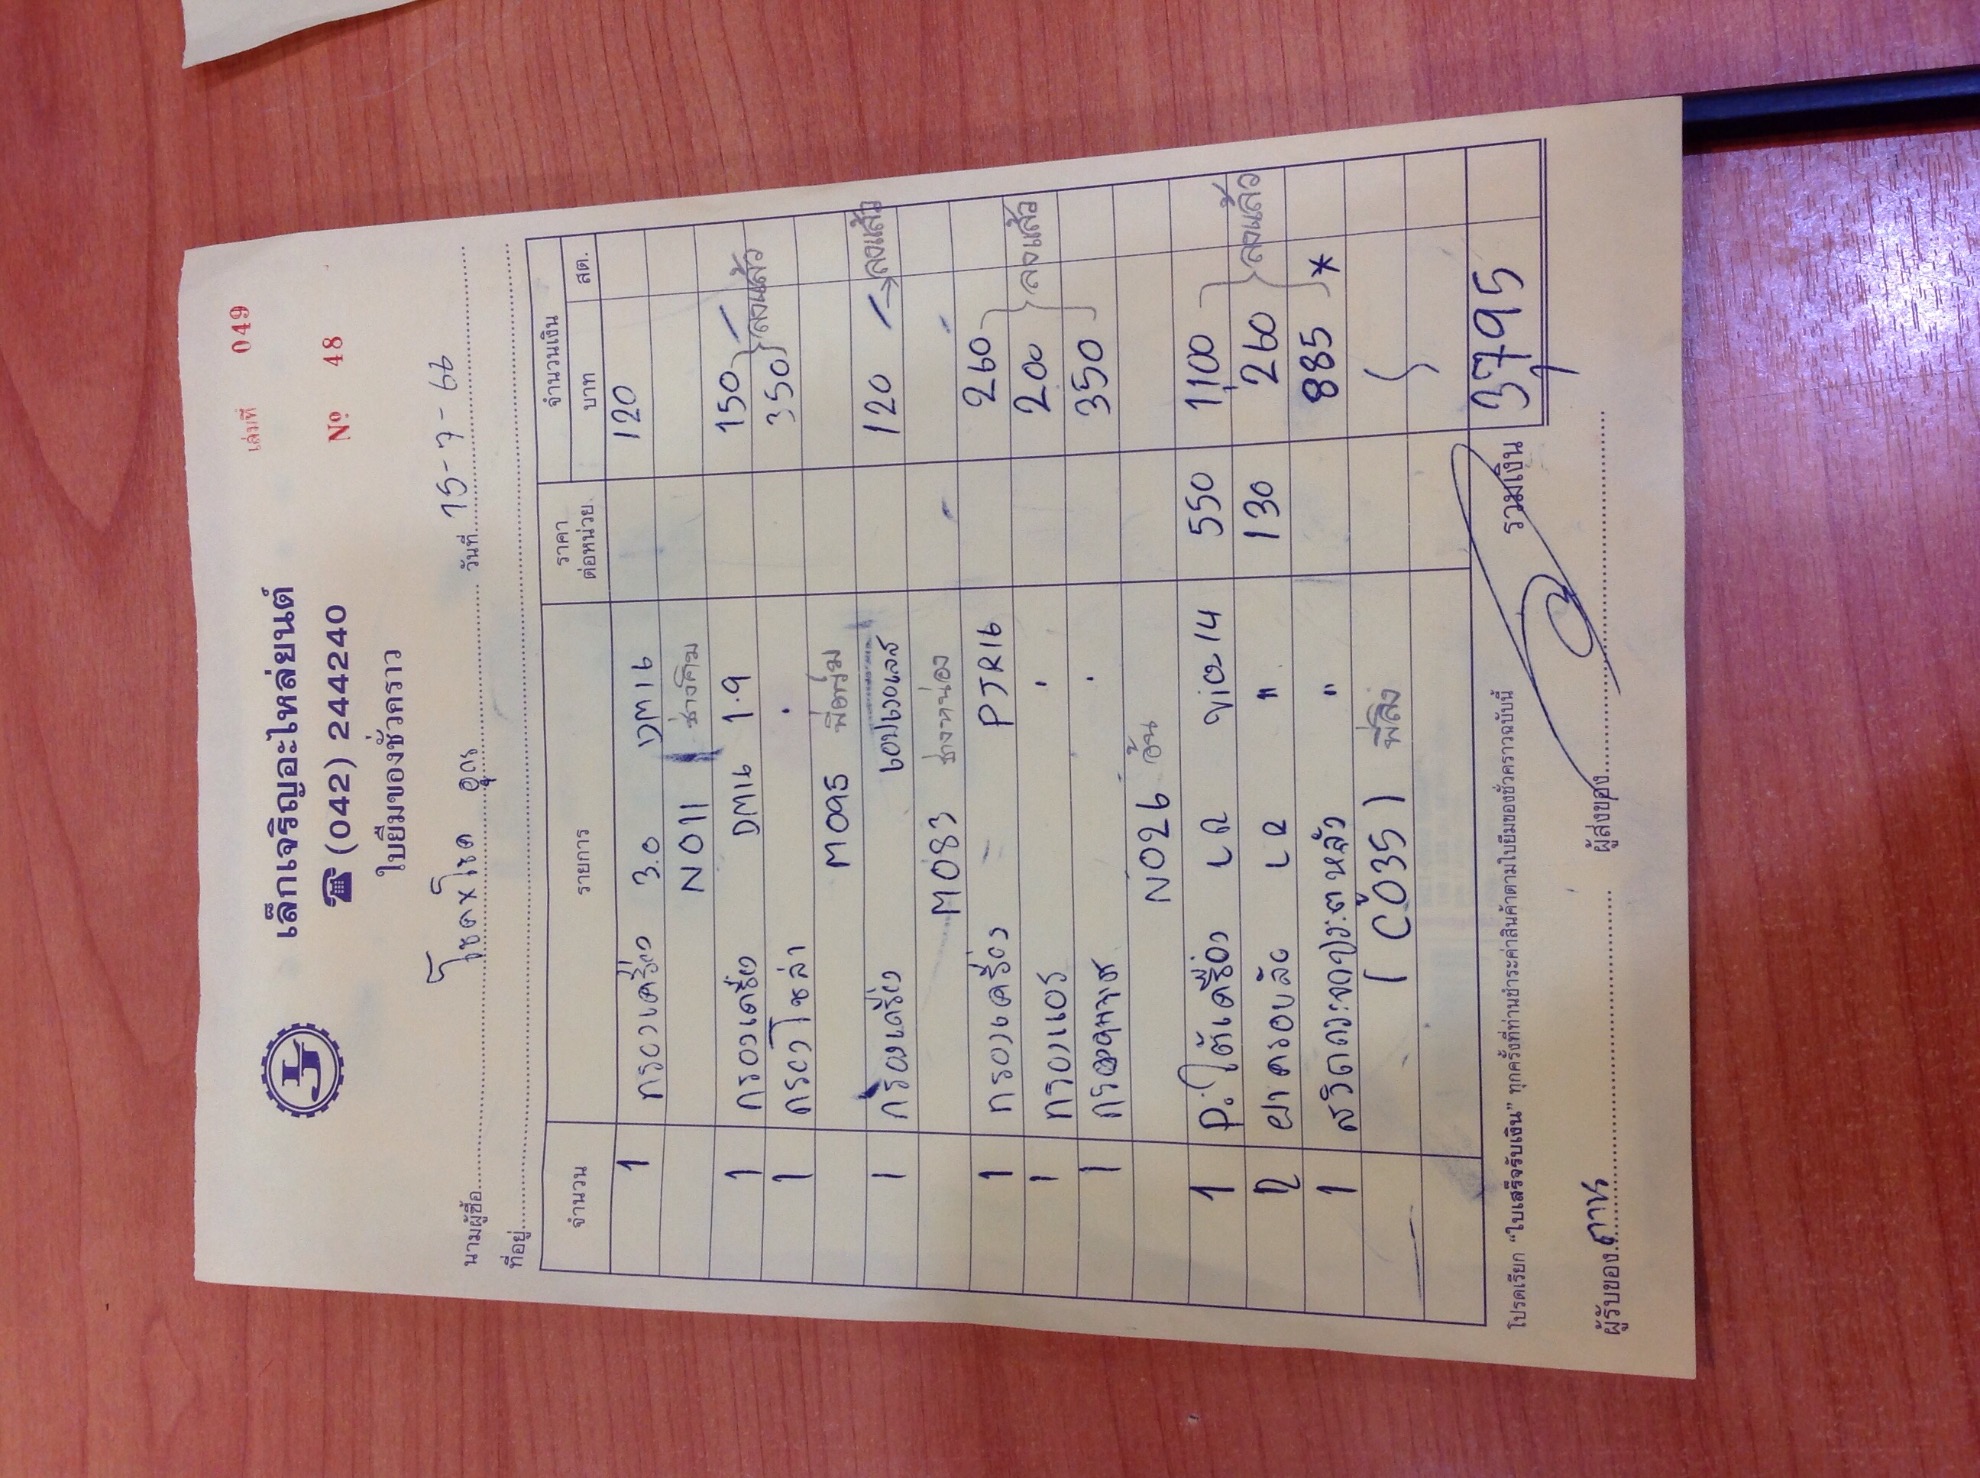 เล่มที่ 049
เล็กเจริญอะไหล่ยนต์
☎ (042) 244240
Nº 48
ใบยืมของชั่วคราว
นามผู้ซื้อ โชคxโชค อุดร วันที่ 15-7-66
ที่อยู่
จำนวน รายการ ราคาต่อหน่วย จำนวนเงิน
บาท สต.
1 กรองเครื่อง 3.0 DM16 120
N011 ช่างคิม
1 กรองเครื่อง DM16 1.9 150 ลงแล้ว
1 กรองโซล่า " 350
M095
1 กรองเครื่อง 120 ลงแล้ว
M083 ช่างหน่อง
1 กรองเครื่อง PJR16 260
1 กรองแอร์ " 200 ลงแล้ว
1 " 350
N026 อ้น
1 P.ใต้เครื่อง LR วีออ 14 550 1,100
2 ยาครอบลัง LR " 130 260 ลงแล้ว
1 " 885 *
(C035) พี่สิง
รวมเงิน 3,795
โปรดเรียก “ใบเสร็จรับเงิน” ทุกครั้งที่ท่านชำระค่าสินค้าตามใบยืมของชั่วคราวฉบับนี้
ผู้รับของ ผู้ส่งของ